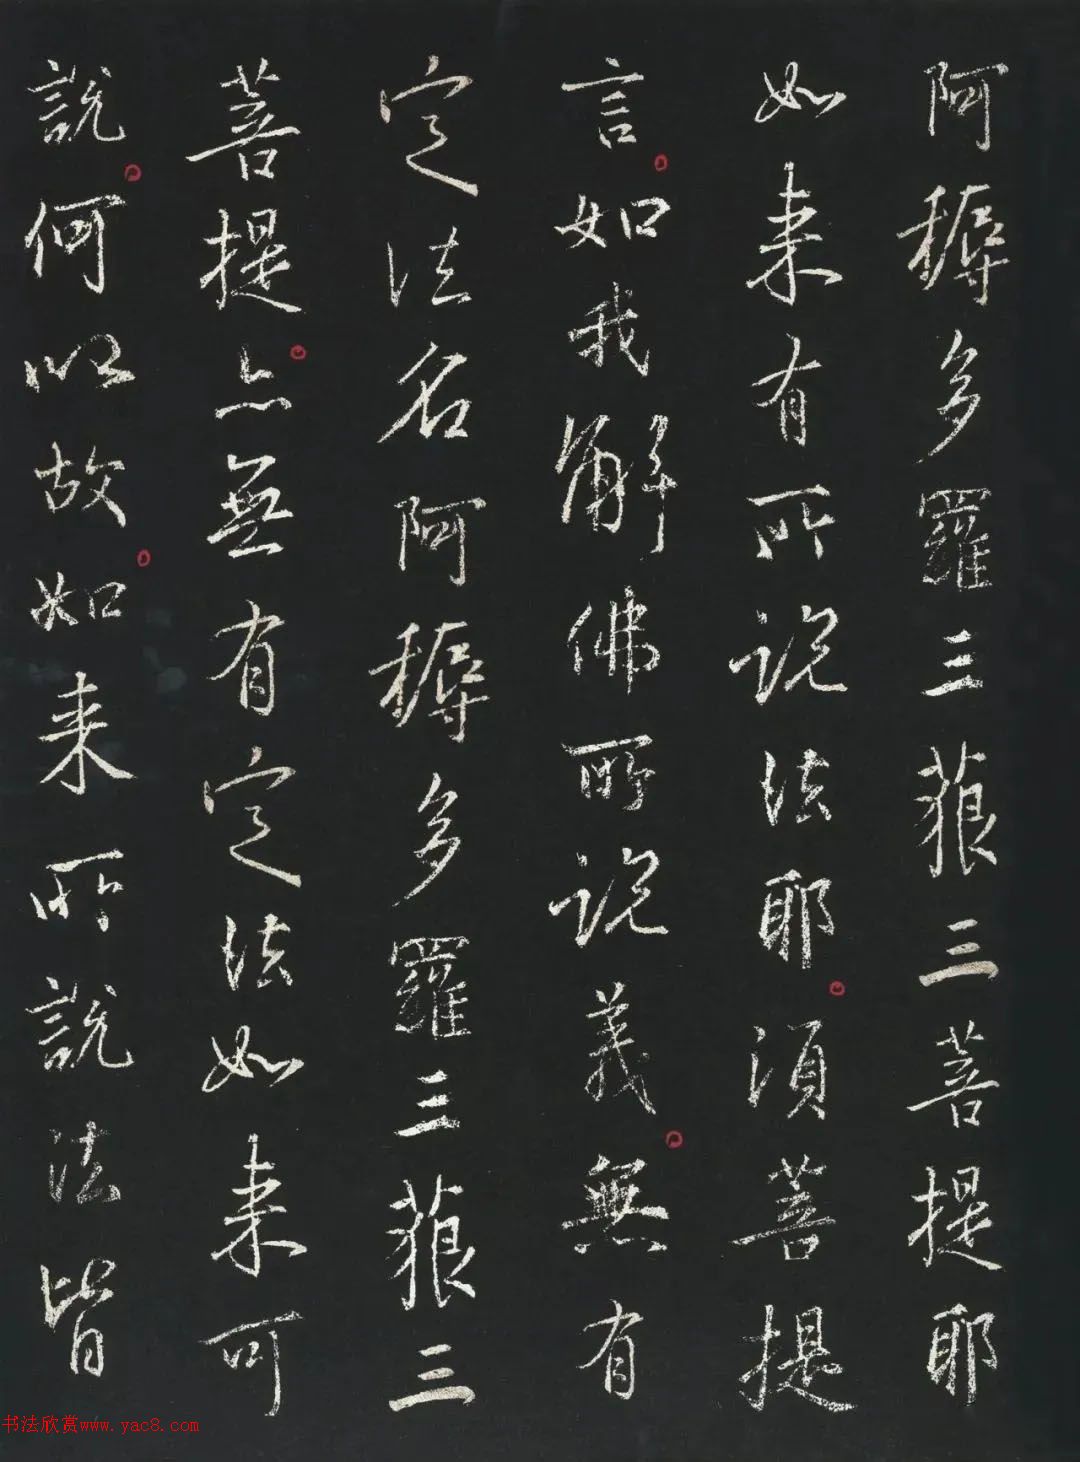 阿耨多羅三藐三菩提耶
如来有所說法耶須菩提
言如我解佛所說義無有
定法名阿耨多羅三藐三
菩提亦無有定法如来可
說何以故如来所說法皆
书法欣赏www.yac8.com